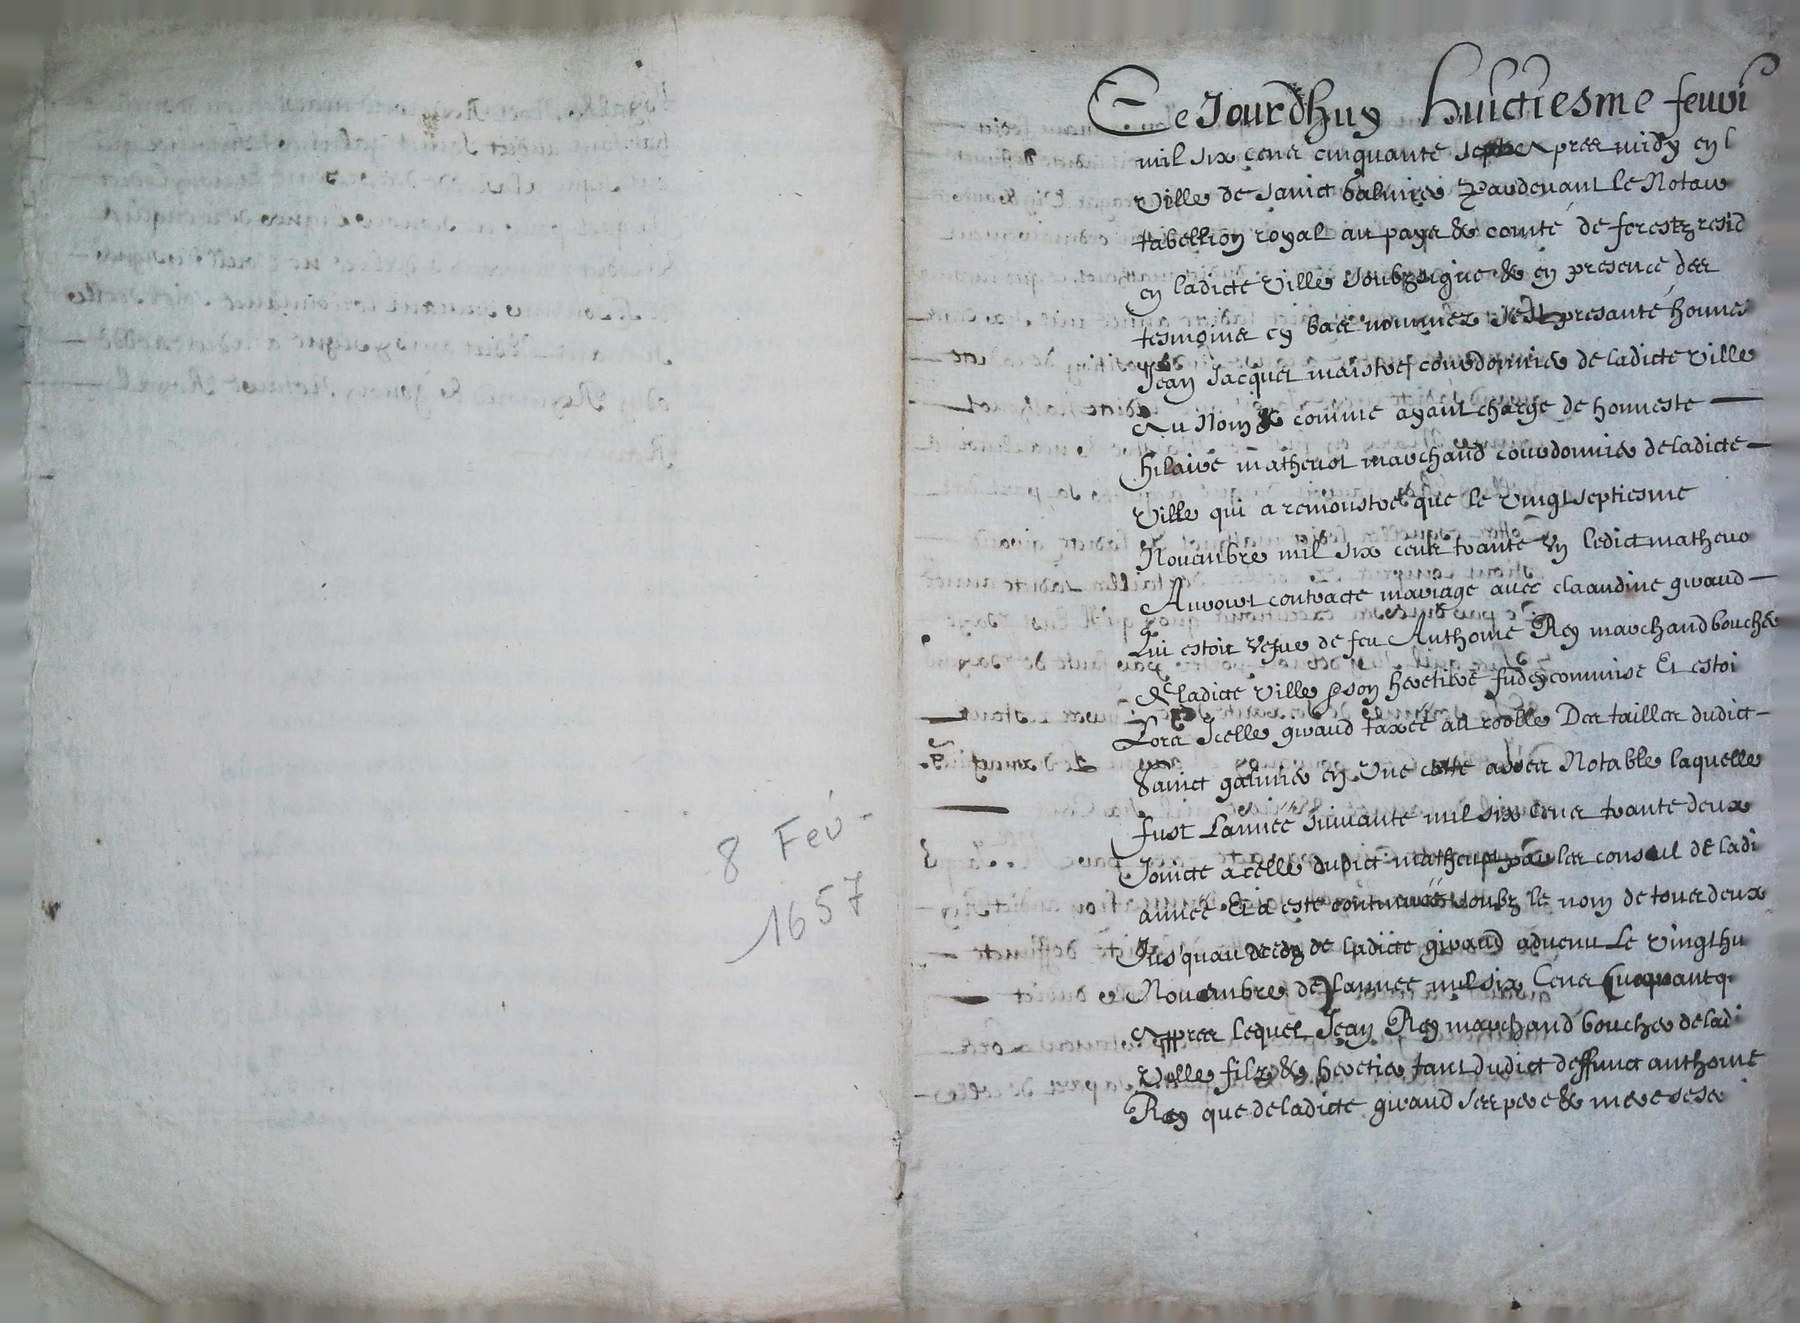 8 Fev.
1657
Ce Jourdhuy huictiesme feuvi
mil six cens cinquante sept apres midy en l
Ville de Sainct Galmier pardevant le Notair
tabellion royal au pays & comté de forestz resid
en ladicte Ville soubzsigne & en presence des
tesmoins en bas nommez s'est presanté honnes
Jean Jacquet maistre courdonnier de ladicte Ville
Au Nom & comme ayant charge de honneste
hilaire mathevot marchand courdonnier de ladicte
Ville qui a remonstré que le vingtseptiesme
Novembre mil six cens trante un ledict mathevo
Auroict contracte mariage avec claaudine giraud
Qui estoit vefve de feu Anthoine Rey marchand boucher
de ladicte Ville & son heretiere fudeycommise Et estoi
Lors Icelle giraud taxée au roolle Des tailles dudict
Sainct galmier en Une cotte asses Notable laquelle
fust L'année suivante mil six cens trante deux
Joincte a celle dudict mathevot par les consul de ladi
année Et a esté continuée soubz le nom de tous deux
Jusquau decedz de ladicte giraud advenu Le vingthu
Novembre de l'année mil six Cens
Appres lequel Jean Rey marchand boucher de ladi
Ville filz & heretier tant dudict deffunct anthoine
Rey que de ladicte giraud ses pere & mere